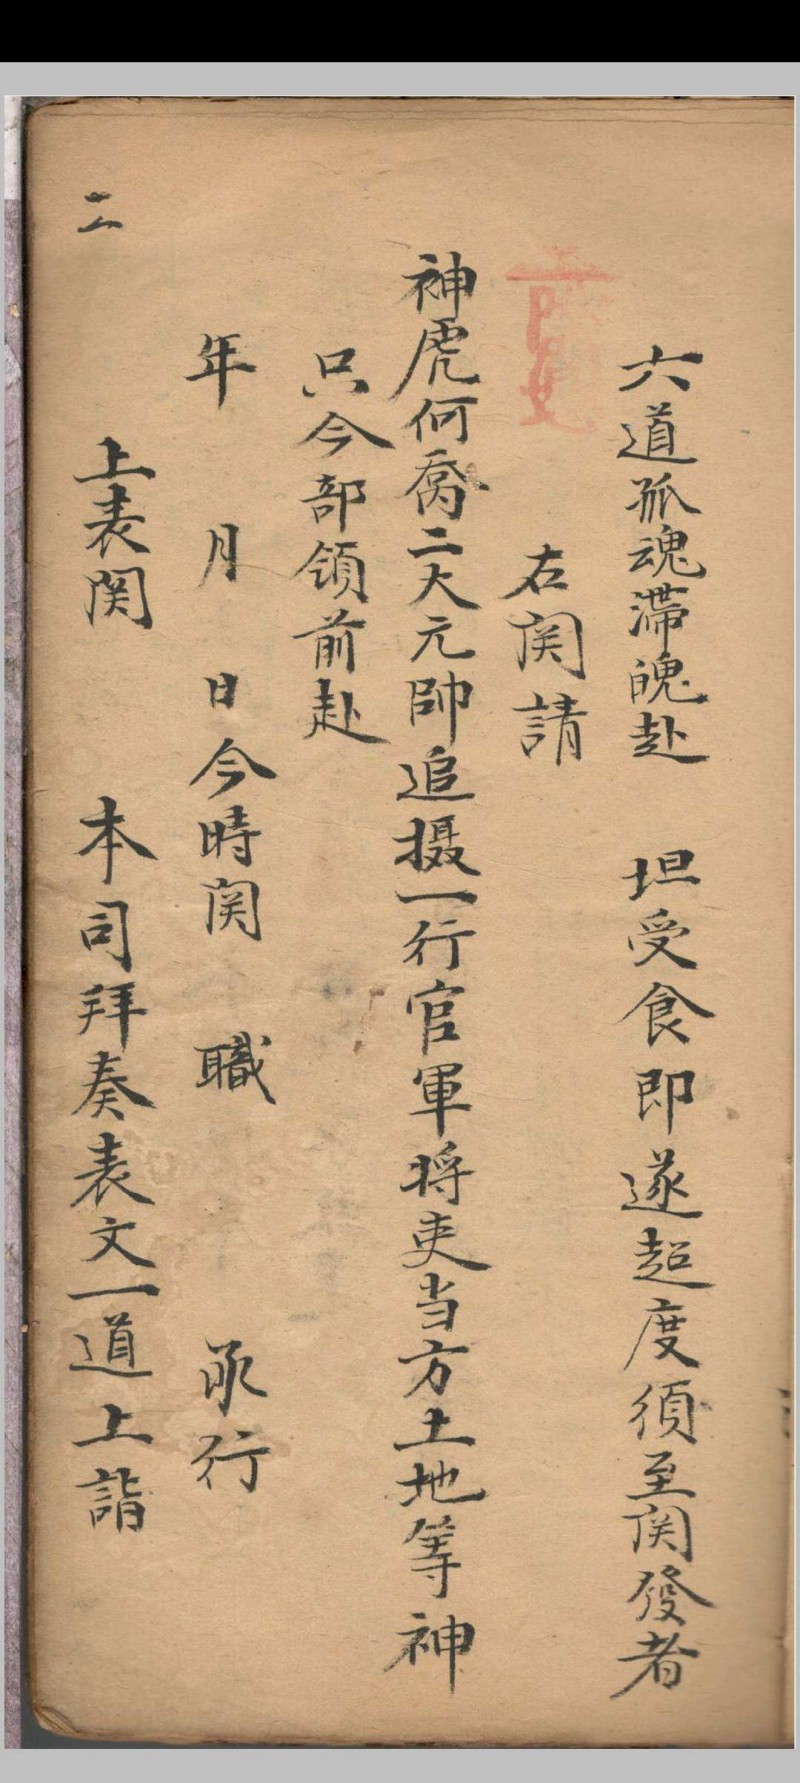 六道孤魂滞魄赴　坦受食即遂超度須至関發者
右関請
神虎何喬二大元帥追摄一行官軍将吏当方土地等神
只今部領前赴
年　月　日今時関　職　承行
上表関　本司拜奏表文一道上詣
二